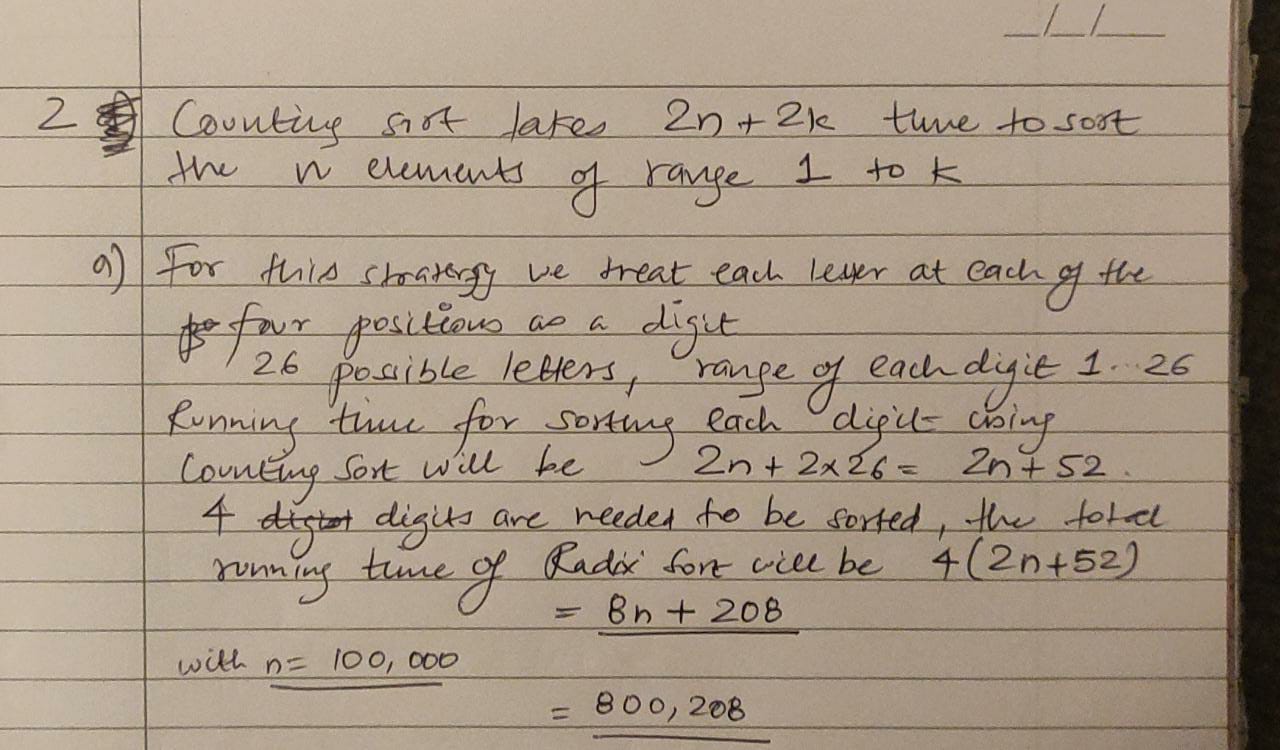 _/_/__
2 Counting sort takes 2n + 2k time to sort
the n elements of range 1 to k
a) For this stratergy we treat each letter at each of the
four positions as a digit
26 possible letters, range of each digit 1...26
Running time for sorting each digit using
Counting Sort will be 2n + 2x26 = 2n + 52.
4 digits are needed to be sorted, the total
running time of Radix Sort will be 4(2n+52)
= 8n + 208
with n= 100,000
= 800,208